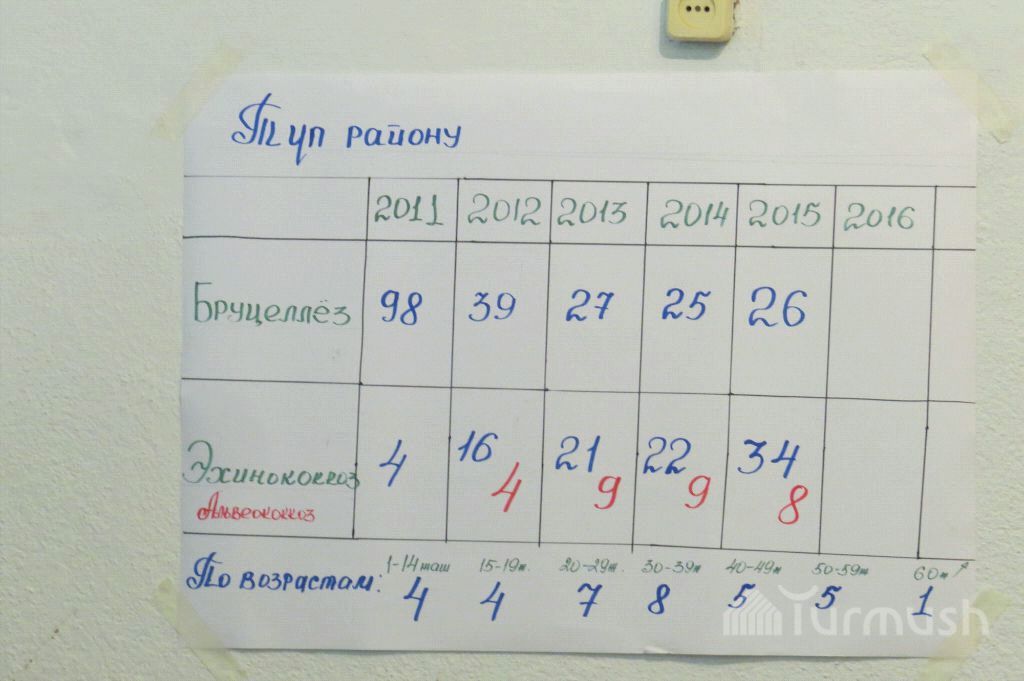 Түп району
2011 2012 2013 2014 2015 2016
Бруцеллёз 98 39 27 25 26
Эхинококкоз 4 16 21 22 34
Альвеококкоз 4 9 9 8
По возрастам: 1-14 жаш 15-19ж. 20-29ж. 30-39ж 40-49ж 50-59ж 60ж↑
4 4 7 8 5 5 1
Turmush